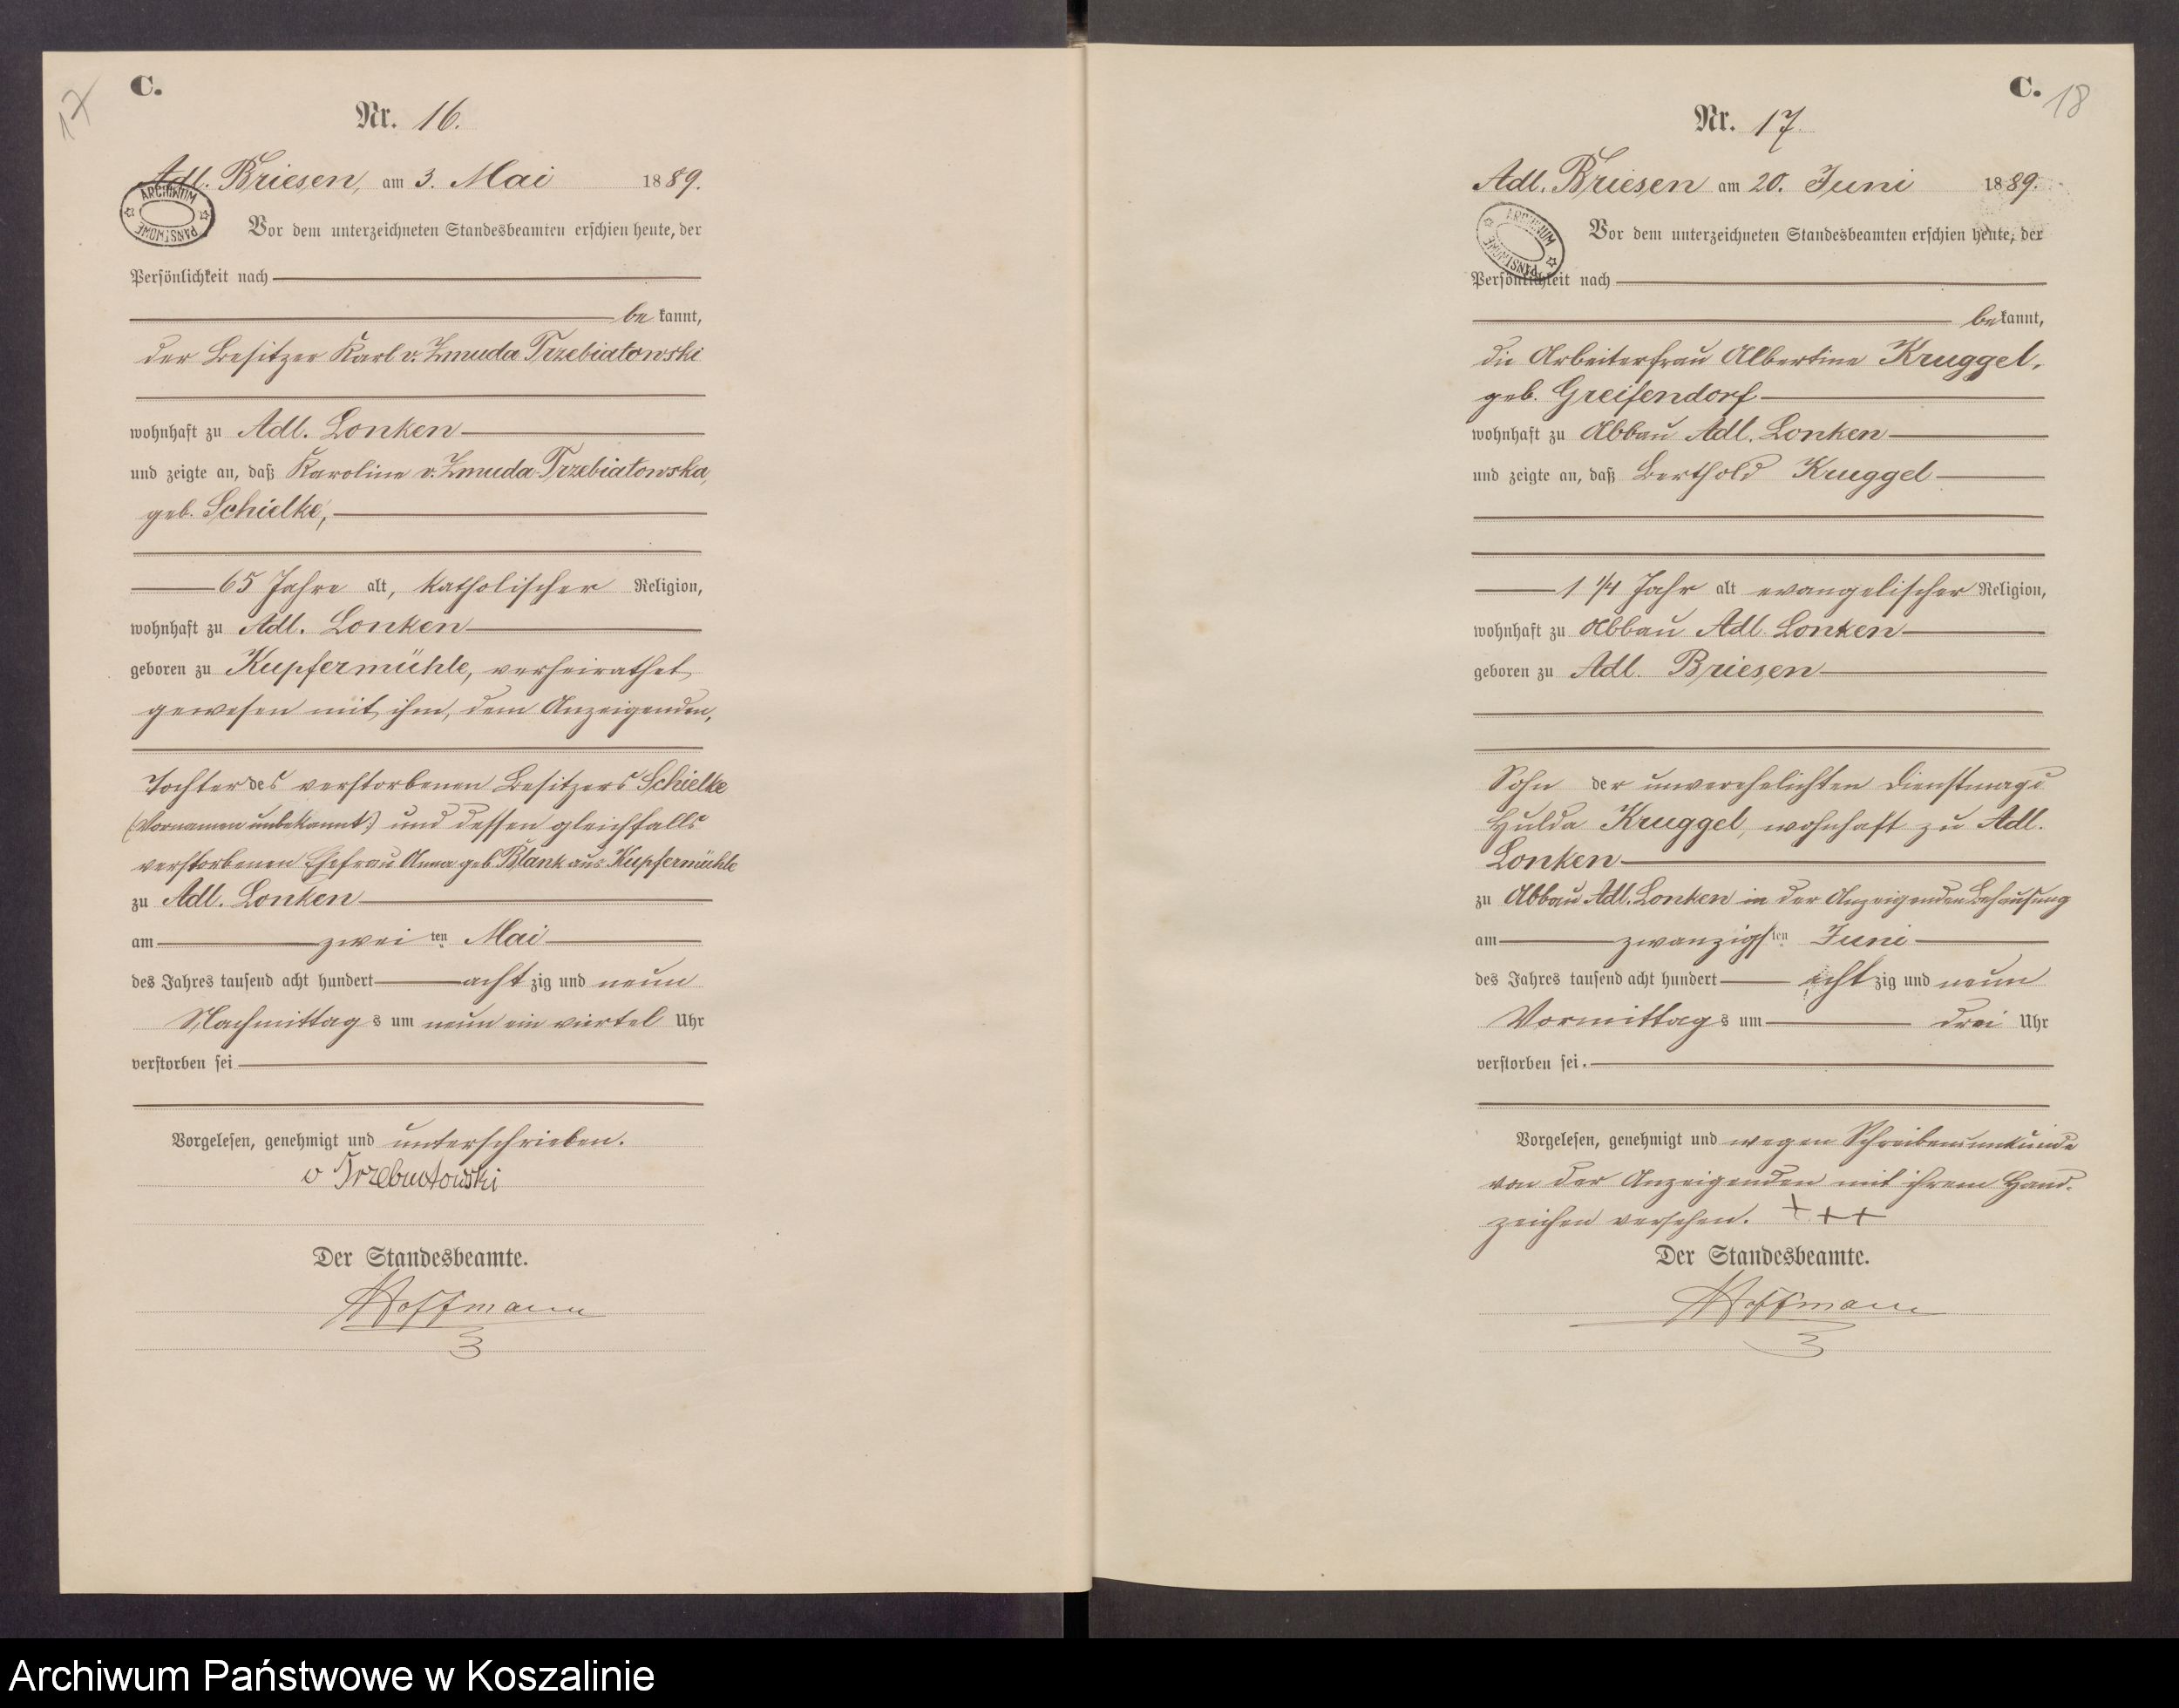 17
C.
Nr. 16.
Adl. Briesen, am 3. Mai 1889.
ARCHIWUM PAŃSTWOWE
Vor dem unterzeichneten Standesbeamten erschien heute, der
Persönlichkeit nach
bekannt,
der Besitzer Karl v. Zmuda Trzebiatowski
wohnhaft zu Adl. Lonken
und zeigte an, daß Karoline v. Zmuda-Trzebiatowska,
geb. Schielke,
65 Jahre alt, katholischer Religion,
wohnhaft zu Adl. Lonken
geboren zu Kupfermühle, verheirathet
gewesen mit ihm, dem Anzeigenden,
Tochter des verstorbenen Besitzers Schielke
(Vornamen unbekannt) und dessen gleichfalls
verstorbenen Ehefrau Anna geb. Blank aus Kupfermühle
zu Adl. Lonken
am zweiten Mai
des Jahres tausend acht hundert achtzig und neun
Nachmittags um neun ein viertel Uhr
verstorben sei
Vorgelesen, genehmigt und unterschrieben.
v Trzebiatowski
Der Standesbeamte.
Hoffmann
C.
18
Nr. 17.
Adl. Briesen am 20. Juni 1889.
ARCHIWUM PAŃSTWOWE
Vor dem unterzeichneten Standesbeamten erschien heute, der
Persönlichkeit nach
bekannt,
die Arbeiterfrau Albertine Kruggel,
geb. Greifendorf
wohnhaft zu Abbau Adl. Lonken
und zeigte an, daß Berthold Kruggel
1 1/4 Jahr alt evangelischer Religion,
wohnhaft zu Abbau Adl. Lonken
geboren zu Adl. Briesen
Sohn der unverehelichten Dienstmagd
Hulda Kruggel, wohnhaft zu Adl.
Lonken
zu Abbau Adl. Lonken in der Anzeigenden Behausung
am zwanzigsten Juni
des Jahres tausend acht hundert achtzig und neun
Vormittags um drei Uhr
verstorben sei.
Vorgelesen, genehmigt und wegen Schreibensunkunde
von der Anzeigenden mit ihrem Hand-
zeichen versehen. +++
Der Standesbeamte.
Hoffmann
Archiwum Państwowe w Koszalinie